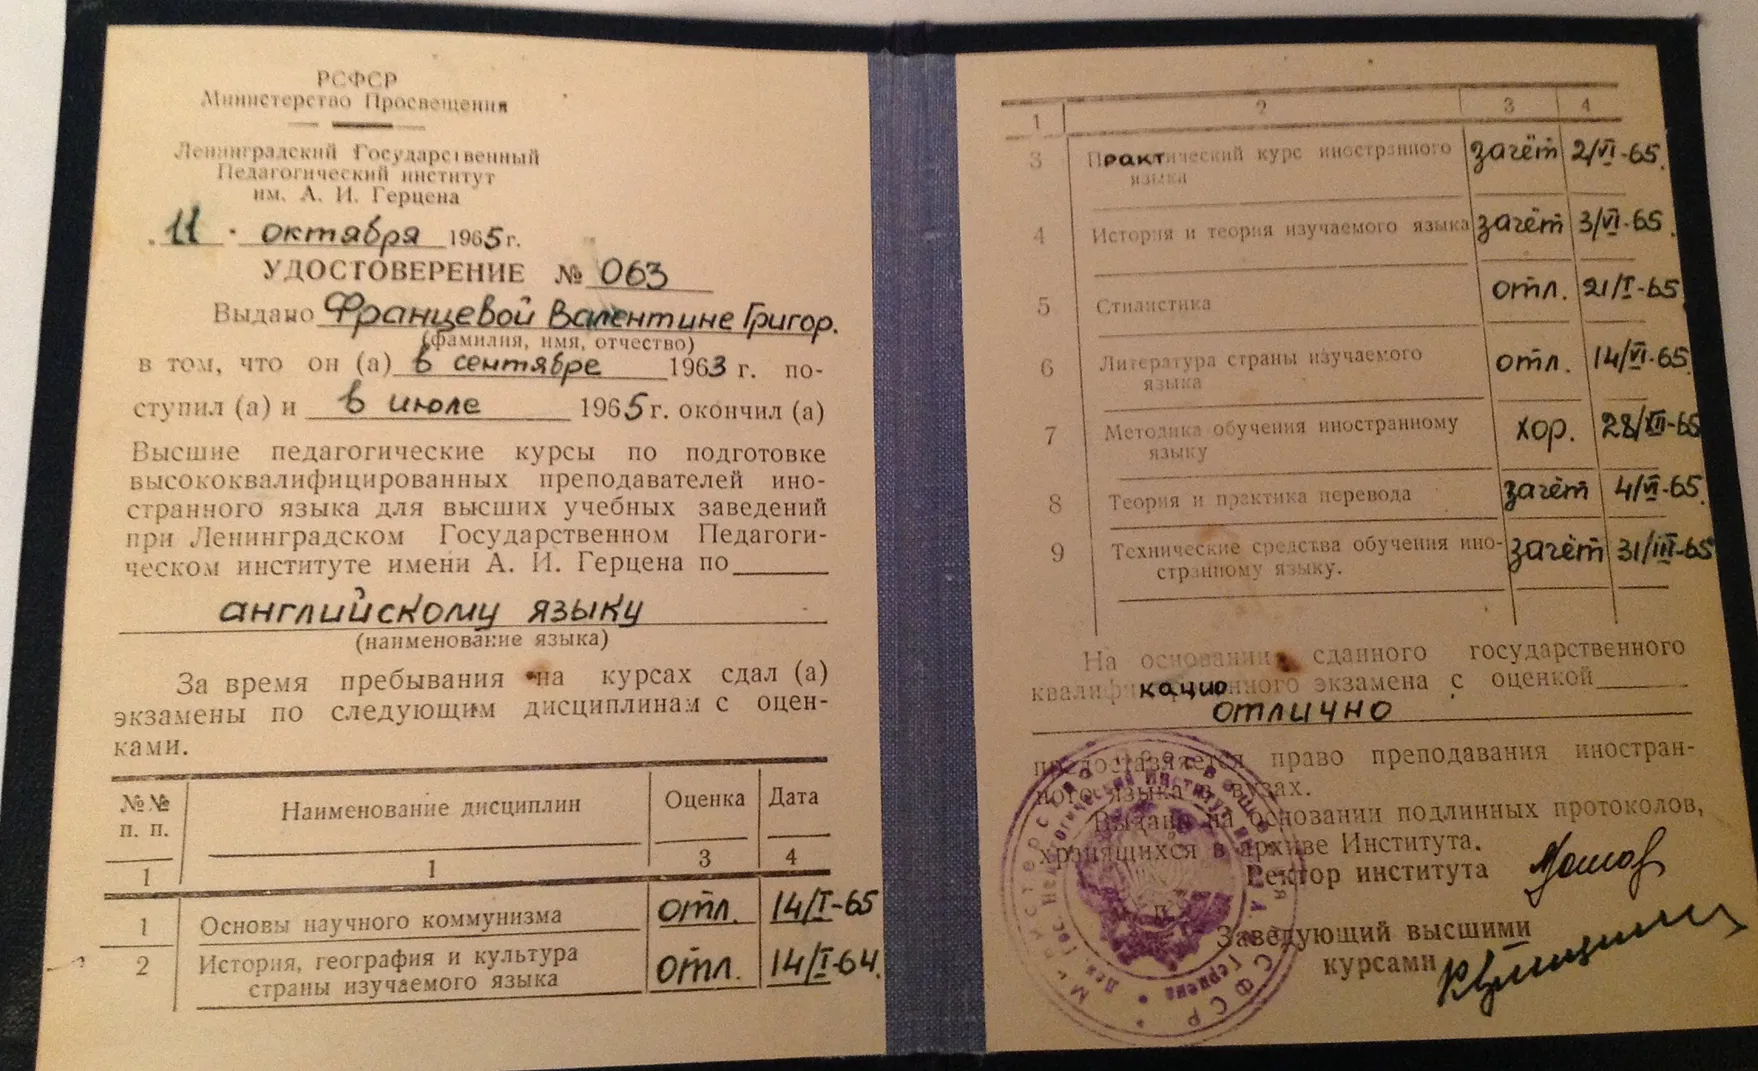 РСФСР
Министерство Просвещения
Ленинградский Государственный
Педагогический институт
им. А. И. Герцена
11 октября 1965 г.
УДОСТОВЕРЕНИЕ № 063
Выдано Францевой Валентине Григор.
(фамилия, имя, отчество)
в том, что он (а) в сентябре 1963 г. по-
ступил (а) и в июле 1965 г. окончил (а)
Высшие педагогические курсы по подготовке
высококвалифицированных преподавателей ино-
странного языка для высших учебных заведений
при Ленинградском Государственном Педагоги-
ческом институте имени А. И. Герцена по
английскому языку
(наименование языка)
За время пребывания на курсах сдал (а)
экзамены по следующим дисциплинам с оцен-
ками.
№№ п. п. Наименование дисциплин Оценка Дата
1 1 3 4
1 Основы научного коммунизма отл. 14/I-65
2 История, география и культура отл. 14/I-64.
страны изучаемого языка
1 2 3 4
3 Практический курс иностранного зачёт 2/VI-65.
языка
4 История и теория изучаемого языка зачёт 3/VI-65.
5 Стилистика отл. 21/I-65
6 Литература страны изучаемого отл. 14/VI-65.
языка
7 Методика обучения иностранному хор. 28/XII-65
языку
8 Теория и практика перевода зачёт 4/VI-65.
9 Технические средства обучения ино- зачёт 31/III-65
странному языку.
На основании сданного государственного
квалификационного экзамена с оценкой
отлично
предоставляется право преподавания иностран-
ного языка в вузах.
Выдано на основании подлинных протоколов,
хранящихся в архиве Института.
Ректор института
Заведующий высшими
курсами